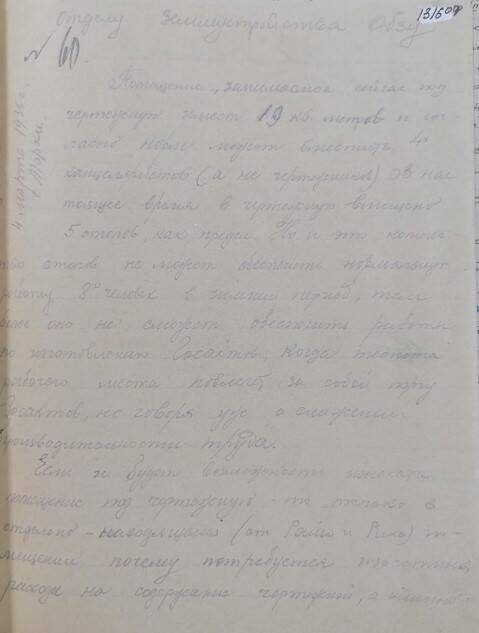 Отделу Землеустройства Обзу
131609
№ 60.
4 марта 1936 г.
Помещение, занимаемое сейчас под
чертежную имеет 19 кв метров и сог-
ласно норм может вместить 4х
канцеляристов (а не чертежников) В нас-
тоящее время в чертежную вмещено
5 столов, как предел. Но и это количе-
тво столов не может обеспечить нормальную
работу 8и человек в зимний период, тем
более оно не сможет обеспечить работы
по изготовлению Госактов, когда теснота
рабочего места повлечет за собой порчу
Госактов, не говоря уже о снижении
производительности труда.
Если и будет возможность изыскать
помещение под чертежную - то только в
отдельно - находящемся (от Райзо и Рика) по-
мещении почему потребуется
расхода на содержание чертежной, а именно